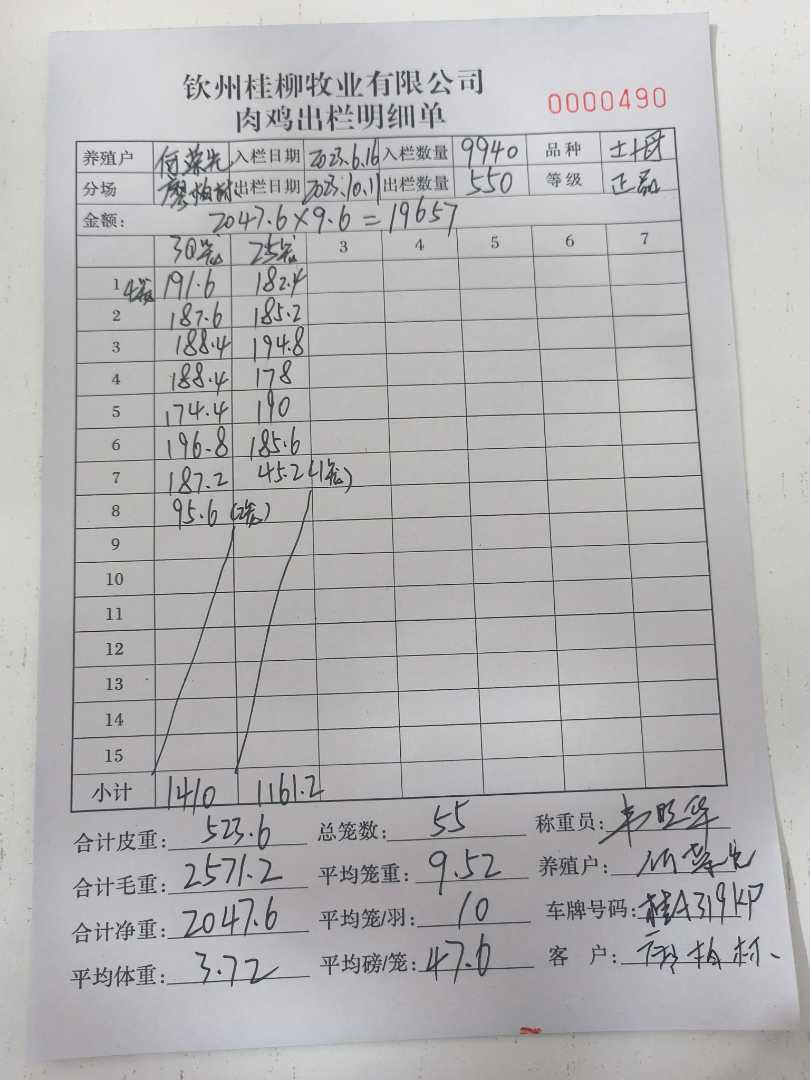 钦州桂柳牧业有限公司
肉鸡出栏明细单
0000490
养殖户 何荣先 入栏日期 2023.6.16 入栏数量 9940 品种
分场 廖柏材 出栏日期 2023.10.11 出栏数量 550 等级 正品
金额: 2047.6×9.6=19657
30笼 25笼 3 4 5 6 7
1 4笼 191.6 182.4
2 187.6 185.2
3 188.4 194.8
4 188.4 178
5 174.4 190
6 196.8 185.6
7 187.2 45.2(1笼)
8 95.6(2笼)
9
10
11
12
13
14
15
小计 1410 1161.2
合计皮重: 523.6 总笼数: 55 称重员:
合计毛重: 2571.2 平均笼重: 9.52 养殖户: 何荣先
合计净重: 2047.6 平均笼/羽: 10 车牌号码: 桂A319KP
平均体重: 3.72 平均磅/笼: 47.6 客户: 廖柏材